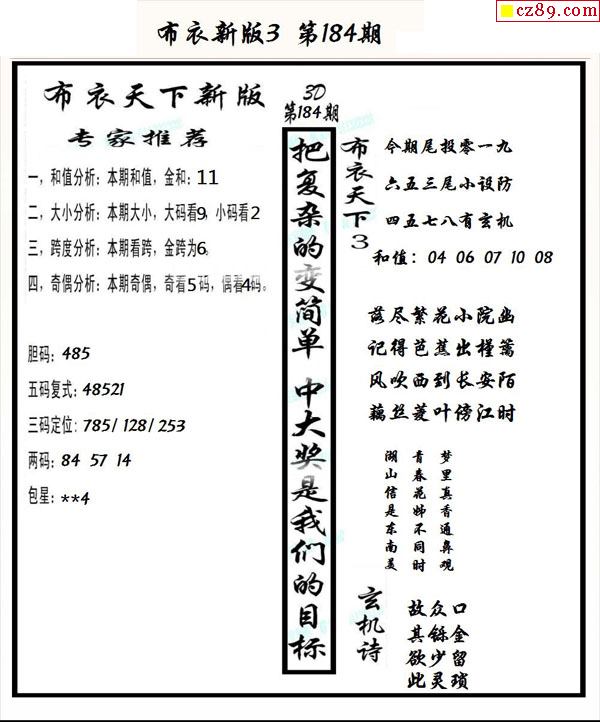 cz89.com
布衣新版3 第184期
布衣天下新版
专家推荐
一，和值分析：本期和值，金和：11
二，大小分析：本期大小，大码看9，小码看2
三，跨度分析：本期看跨，金跨为6。
四，奇偶分析：本期奇偶，奇看5码，偶看4码。
胆码：485
五码复式：48521
三码定位：785/128/253
两码：84 57 14
包星：**4
3D
第184期
把复杂的变简单 中大奖是我们的目标
布衣天下3
今期尾投零一九
六五三尾小设防
四五七八有玄机
和值：04 06 07 10 08
落尽繁花小院幽
记得芭蕉出槿篱
风吹西到长安陌
藕丝菱叶傍江时
湖山信是东南美
青春花姊不同时
梦里真香通鼻观
玄机诗
故众口
其铄金
欲少留
此灵琐